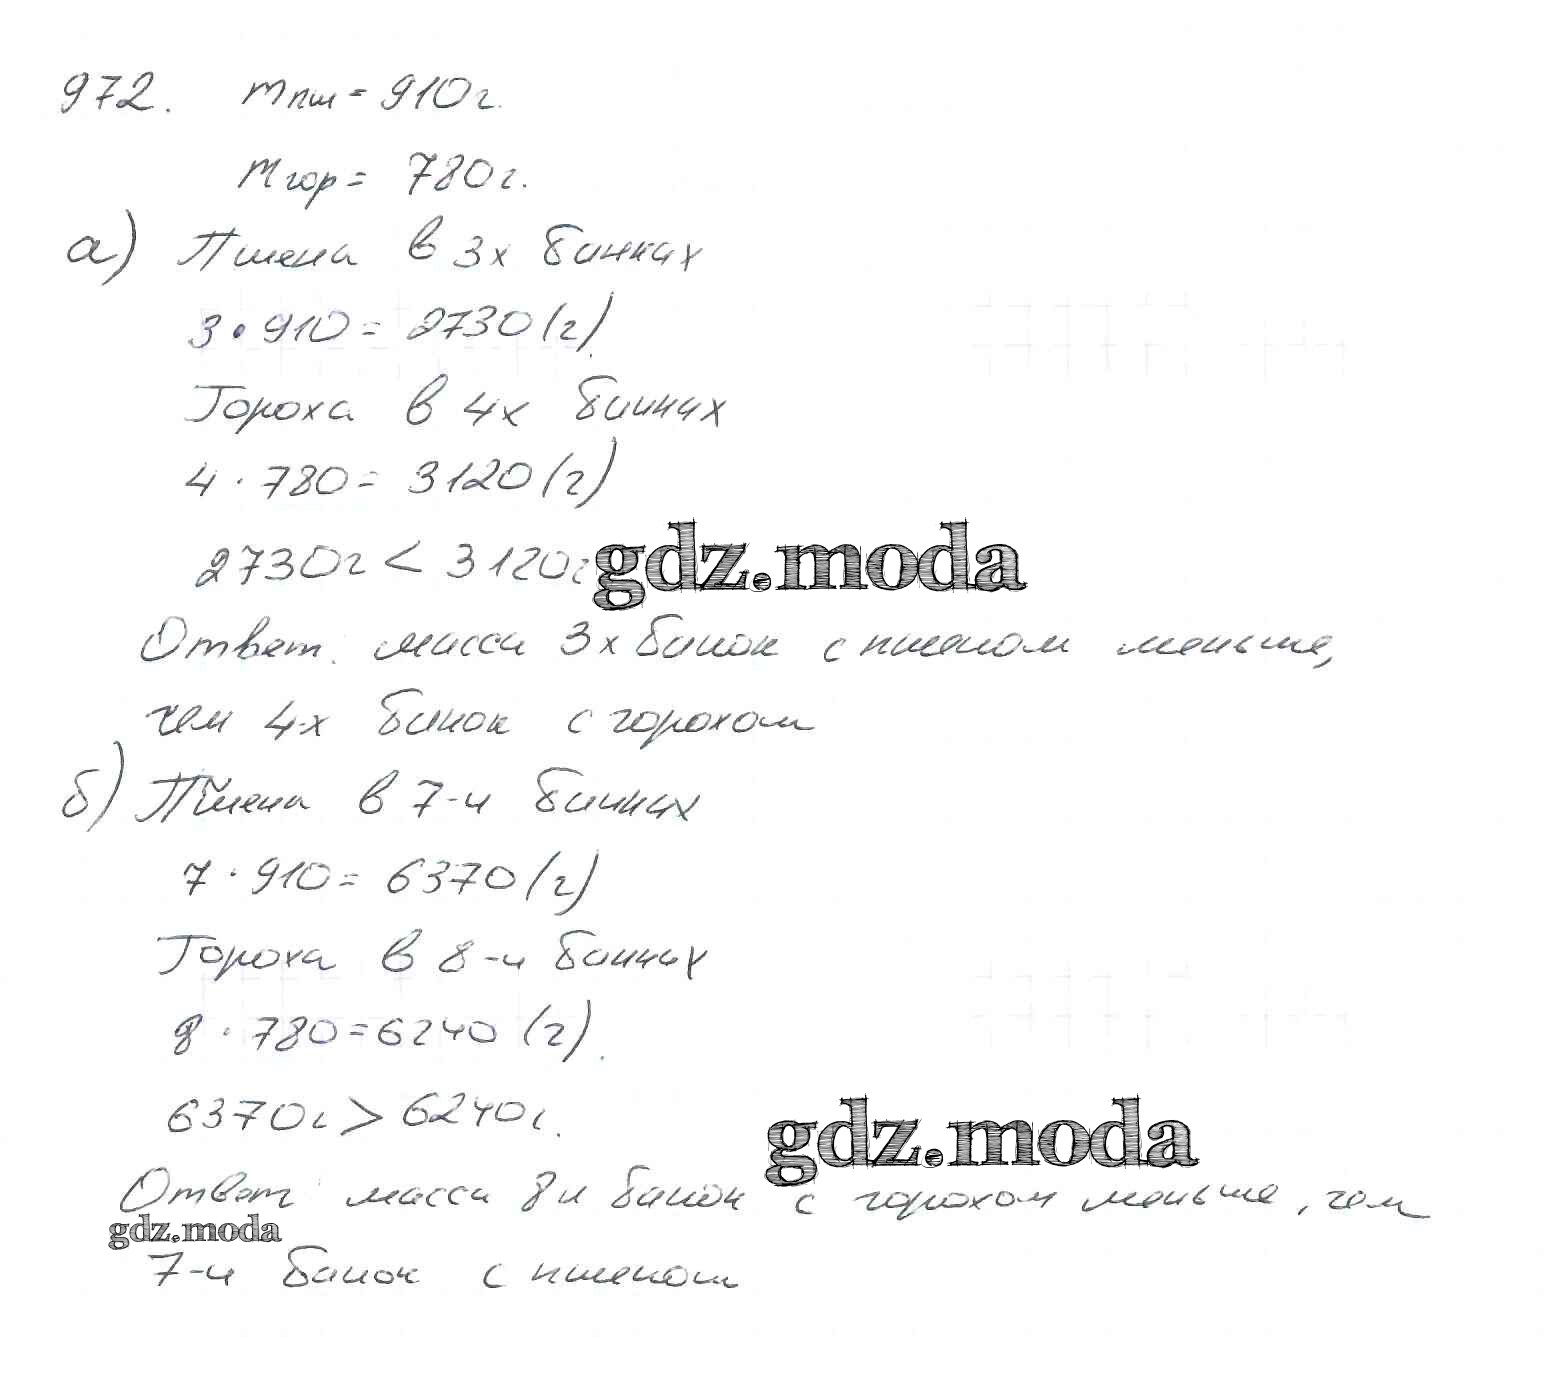 972. mпш = 910г.
mгор = 780г.
а) Пшена в 3х банках
3 • 910 = 2730 (г).
Гороха в 4х банках
4 · 780 = 3120 (г)
2730г < 3120г
gdz.moda
Ответ: масса 3х банок с пшеном меньше,
чем 4х банок с горохом
б) Пшена в 7-и банках
7 · 910 = 6370 (г)
Гороха в 8-и банках
8 · 780 = 6240 (г).
6370г > 6240г.
gdz.moda
Ответ масса 8и банок с горохом меньше, чем
gdz.moda
7-и банок с пшеном